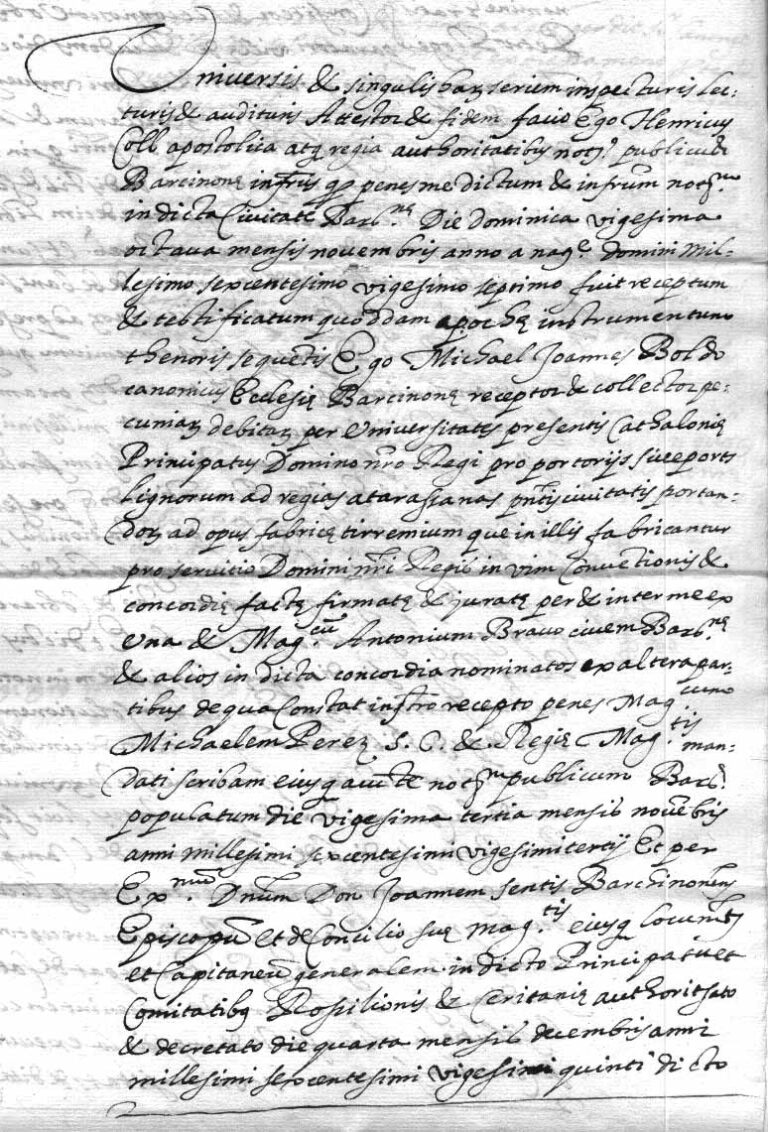 Universis & singulis hanc seriem inspecturis lec:
turis & audituris Attestor & fidem facio Ego Henricus
Coll apostolica atq regia authoritatibus not.s publicus
Barcinonę infrus qz penes me dictum & infrum not.m
in dicta Civitate Barc.nę Die dominica vigesima
octava mensis novembris anno a nat.e domini Mil-
lesimo sexcentesimo vigesimo septimo fuit receptum
& testificatum quoddam apochę instrumentum
thenoris sequetis Ego Michael Joannes Boldo
canonicus Ecclesię Barcinonę receptor & collector pe:
cuniaz debitaz per Universitates presentis Cathalonię
Principatus Domino nro Regi pro portorijs sive ports
lignorum ad regias atarasianas pntis civitatis portan-
doz ad opus fabricę tirremium que in illis fabricantur
pro servitio Domini nri Regis in vim Conuetionis &
concordię factę firmatę & juratę per & inter me ex
Una & Mag.cũ Antonium Bravo civem Barc.nę
& alios in dicta concordia nominatos ex altera par-
tibus de qua Constat instro recepto penes Mag.cum
Michaelem Perez S. C. & Regię Mag.tis man-
dati scribam eiusq aucte not.m publicum Barc.
populatum die vigesima tertia mensis novebris
anni millesimi sexcentesimi vigesimi tertij Et per
Ex.mum Dnum Don Joannem Sentis Barchinonens
Episcopũ et de Concilio suę Mag.tis eiusq Locumts
et Capitaneũ generalem in dicto Principatu et
Comitatibq Rossilionis & Ceritanię authoritsato
& decretato die quarta mensis decembris anni
millesimi sexcentesimi vigesimi quinti dicto